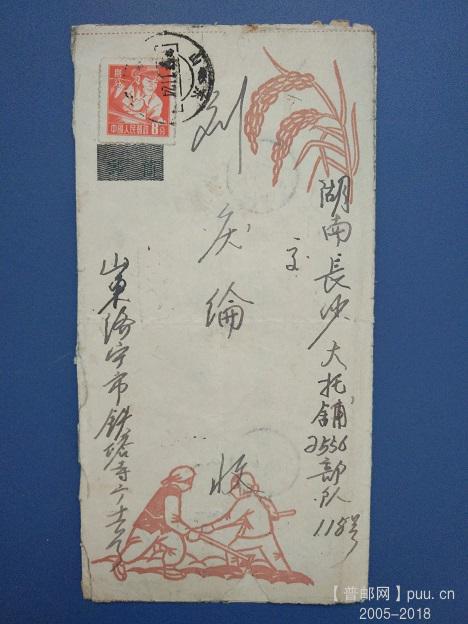 湖南長沙大托铺
2556部队118号
交
刘庆綸 收
山東济宁市铁塔寺
中国人民邮政 8分
【普邮网】puu.cn
2005-2018